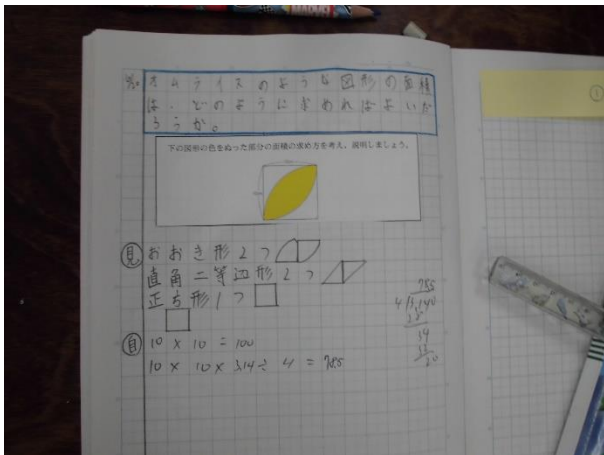 オムライスのような図形の面積
は、どのように求めればよいだ
ろうか。
下の図形の色をぬった部分の面積の求め方を考え、説明しましょう。
見 おおぎ形2つ
直角二等辺形2つ
正方形1つ
自 10×10=100
10×10×3.14÷4=78.5
①